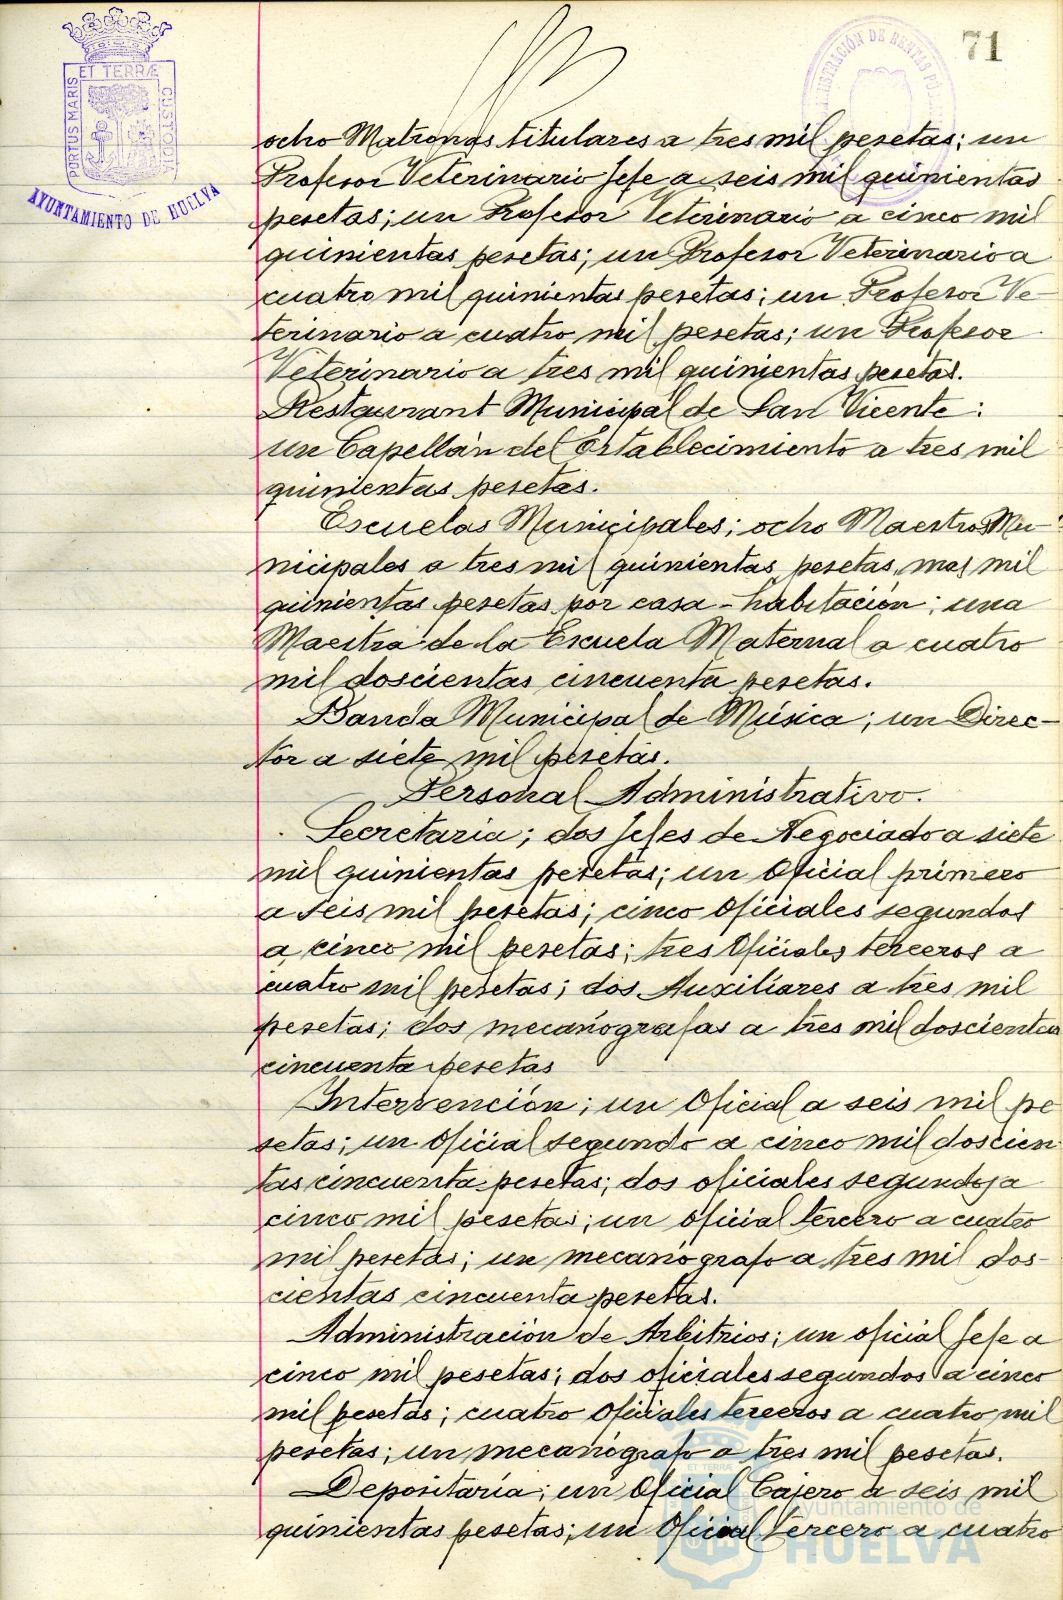 71
ET TERRÆ
PORTUS MARIS
CUSTODIA
AYUNTAMIENTO DE HUELVA
ocho Matronas titulares a tres mil pesetas; un
Profesor Veterinario Jefe a seis mil quinientas
pesetas; un Profesor Veterinario a cinco mil
quinientas pesetas; un Profesor Veterinario a
cuatro mil quinientas pesetas; un Profesor Ve-
terinario a cuatro mil pesetas; un Profesor
Veterinario a tres mil quinientas pesetas.
Restaurant Municipal de San Vicente:
un Capellán del Establecimiento a tres mil
quinientas pesetas.
Escuelas Municipales; ocho Maestros Mu-
nicipales a tres mil quinientas pesetas, mas mil
quinientas pesetas por casa-habitación; una
Maestra de la Escuela Maternal a cuatro
mil doscientas cincuenta pesetas.
Banda Municipal de Música; un Direc-
tor a siete mil pesetas.
Personal Administrativo.
Secretaria; dos Jefes de Negociado a siete
mil quinientas pesetas; un Oficial primero
a seis mil pesetas; cinco Oficiales segundos
a cinco mil pesetas; tres Oficiales terceros a
cuatro mil pesetas; dos Auxiliares a tres mil
pesetas; dos mecanógrafas a tres mil doscientas
cincuenta pesetas
Intervención; un Oficial a seis mil pe
setas; un oficial segundo a cinco mil doscien
tas cincuenta pesetas; dos oficiales segundos a
cinco mil pesetas; un oficial tercero a cuatro
mil pesetas; un mecanógrafo a tres mil dos-
cientas cincuenta pesetas.
Administración de Arbitrios; un oficial Jefe a
cinco mil pesetas; dos oficiales segundos a cinco
mil pesetas; cuatro oficiales terceros a cuatro mil
pesetas; un mecanógrafo a tres mil pesetas.
Depositaría; un Oficial Cajero a seis mil
quinientas pesetas; un Oficial tercero a cuatro
Ayuntamiento de
HUELVA